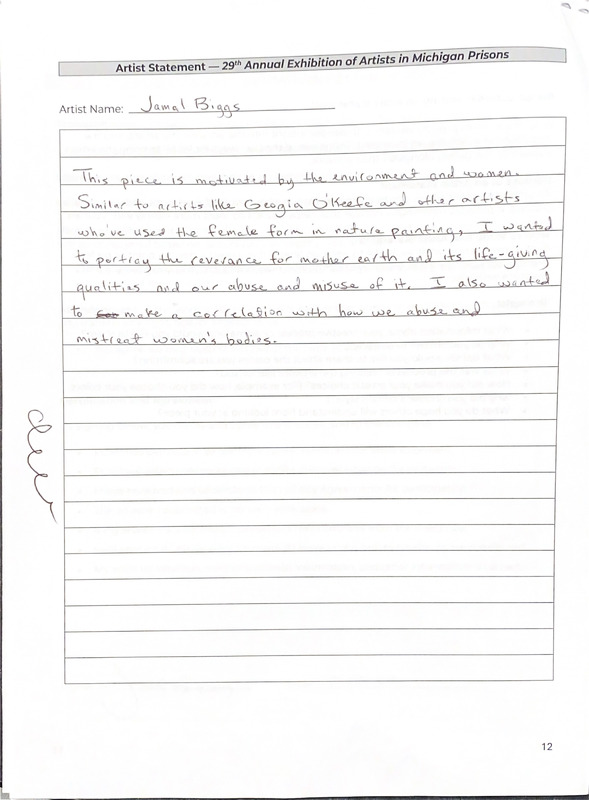 Artist Statement — 29th Annual Exhibition of Artists in Michigan Prisons
Artist Name: Jamal Biggs
This piece is motivated by the environment and women.
Similar to artists like Georgia O'Keefe and other artists
who've used the female form in nature painting, I wanted
to portray the reverance for mother earth and its life-giving
qualities and our abuse and misuse of it. I also wanted
to make a correlation with how we abuse and
mistreat women's bodies.
12